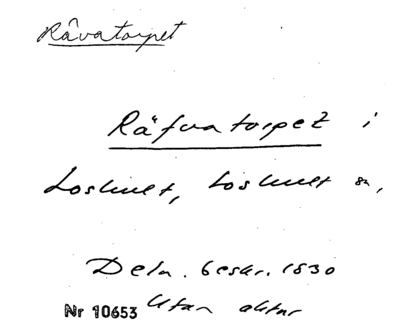 Råvatorpet
Räfvatorpet i
Loshult, Loshult sn,
Deln. beskr. 1830
Nr 10653 Utan aktnr